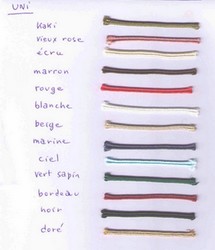 UNI
Kaki
vieux rose
écru
marron
rouge
blanche
beige
marine
ciel
vert sapin
bordeau
noir
doré